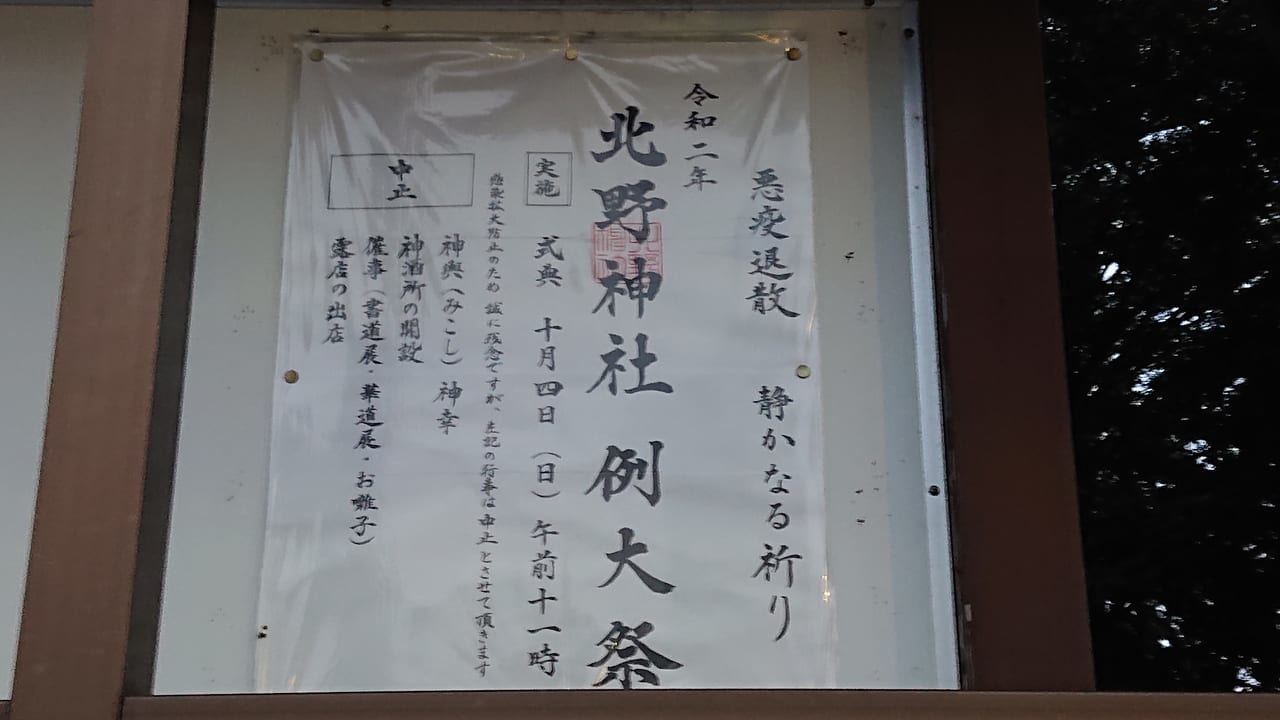 悪疫退散 静かなる祈り
令和二年
北野神社 例大祭
実施
式典 十月四日(日)午前十一時
感染拡大防止のため 誠に残念ですが、左記の行事は中止とさせて頂きます
中止
神輿(みこし)神幸
神酒所の開設
催事(書道展・華道展・お囃子)
露店の出店